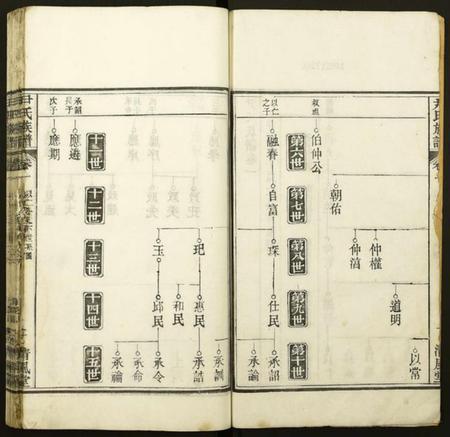 尹氏族譜
第六世
第七世
第八世
第九世
第十世
伯仲公
以仁
之子
融春
朝佑
自富
仲權
仲滈
琛
道明
仕民
以常
承詔
承論
十一世
十二世
十三世
十四世
十五世
承韶
長子
應遴
次子
應期
玘
玉
惠民
和民
邱民
承誥
承令
承命
承諭
尹氏族譜